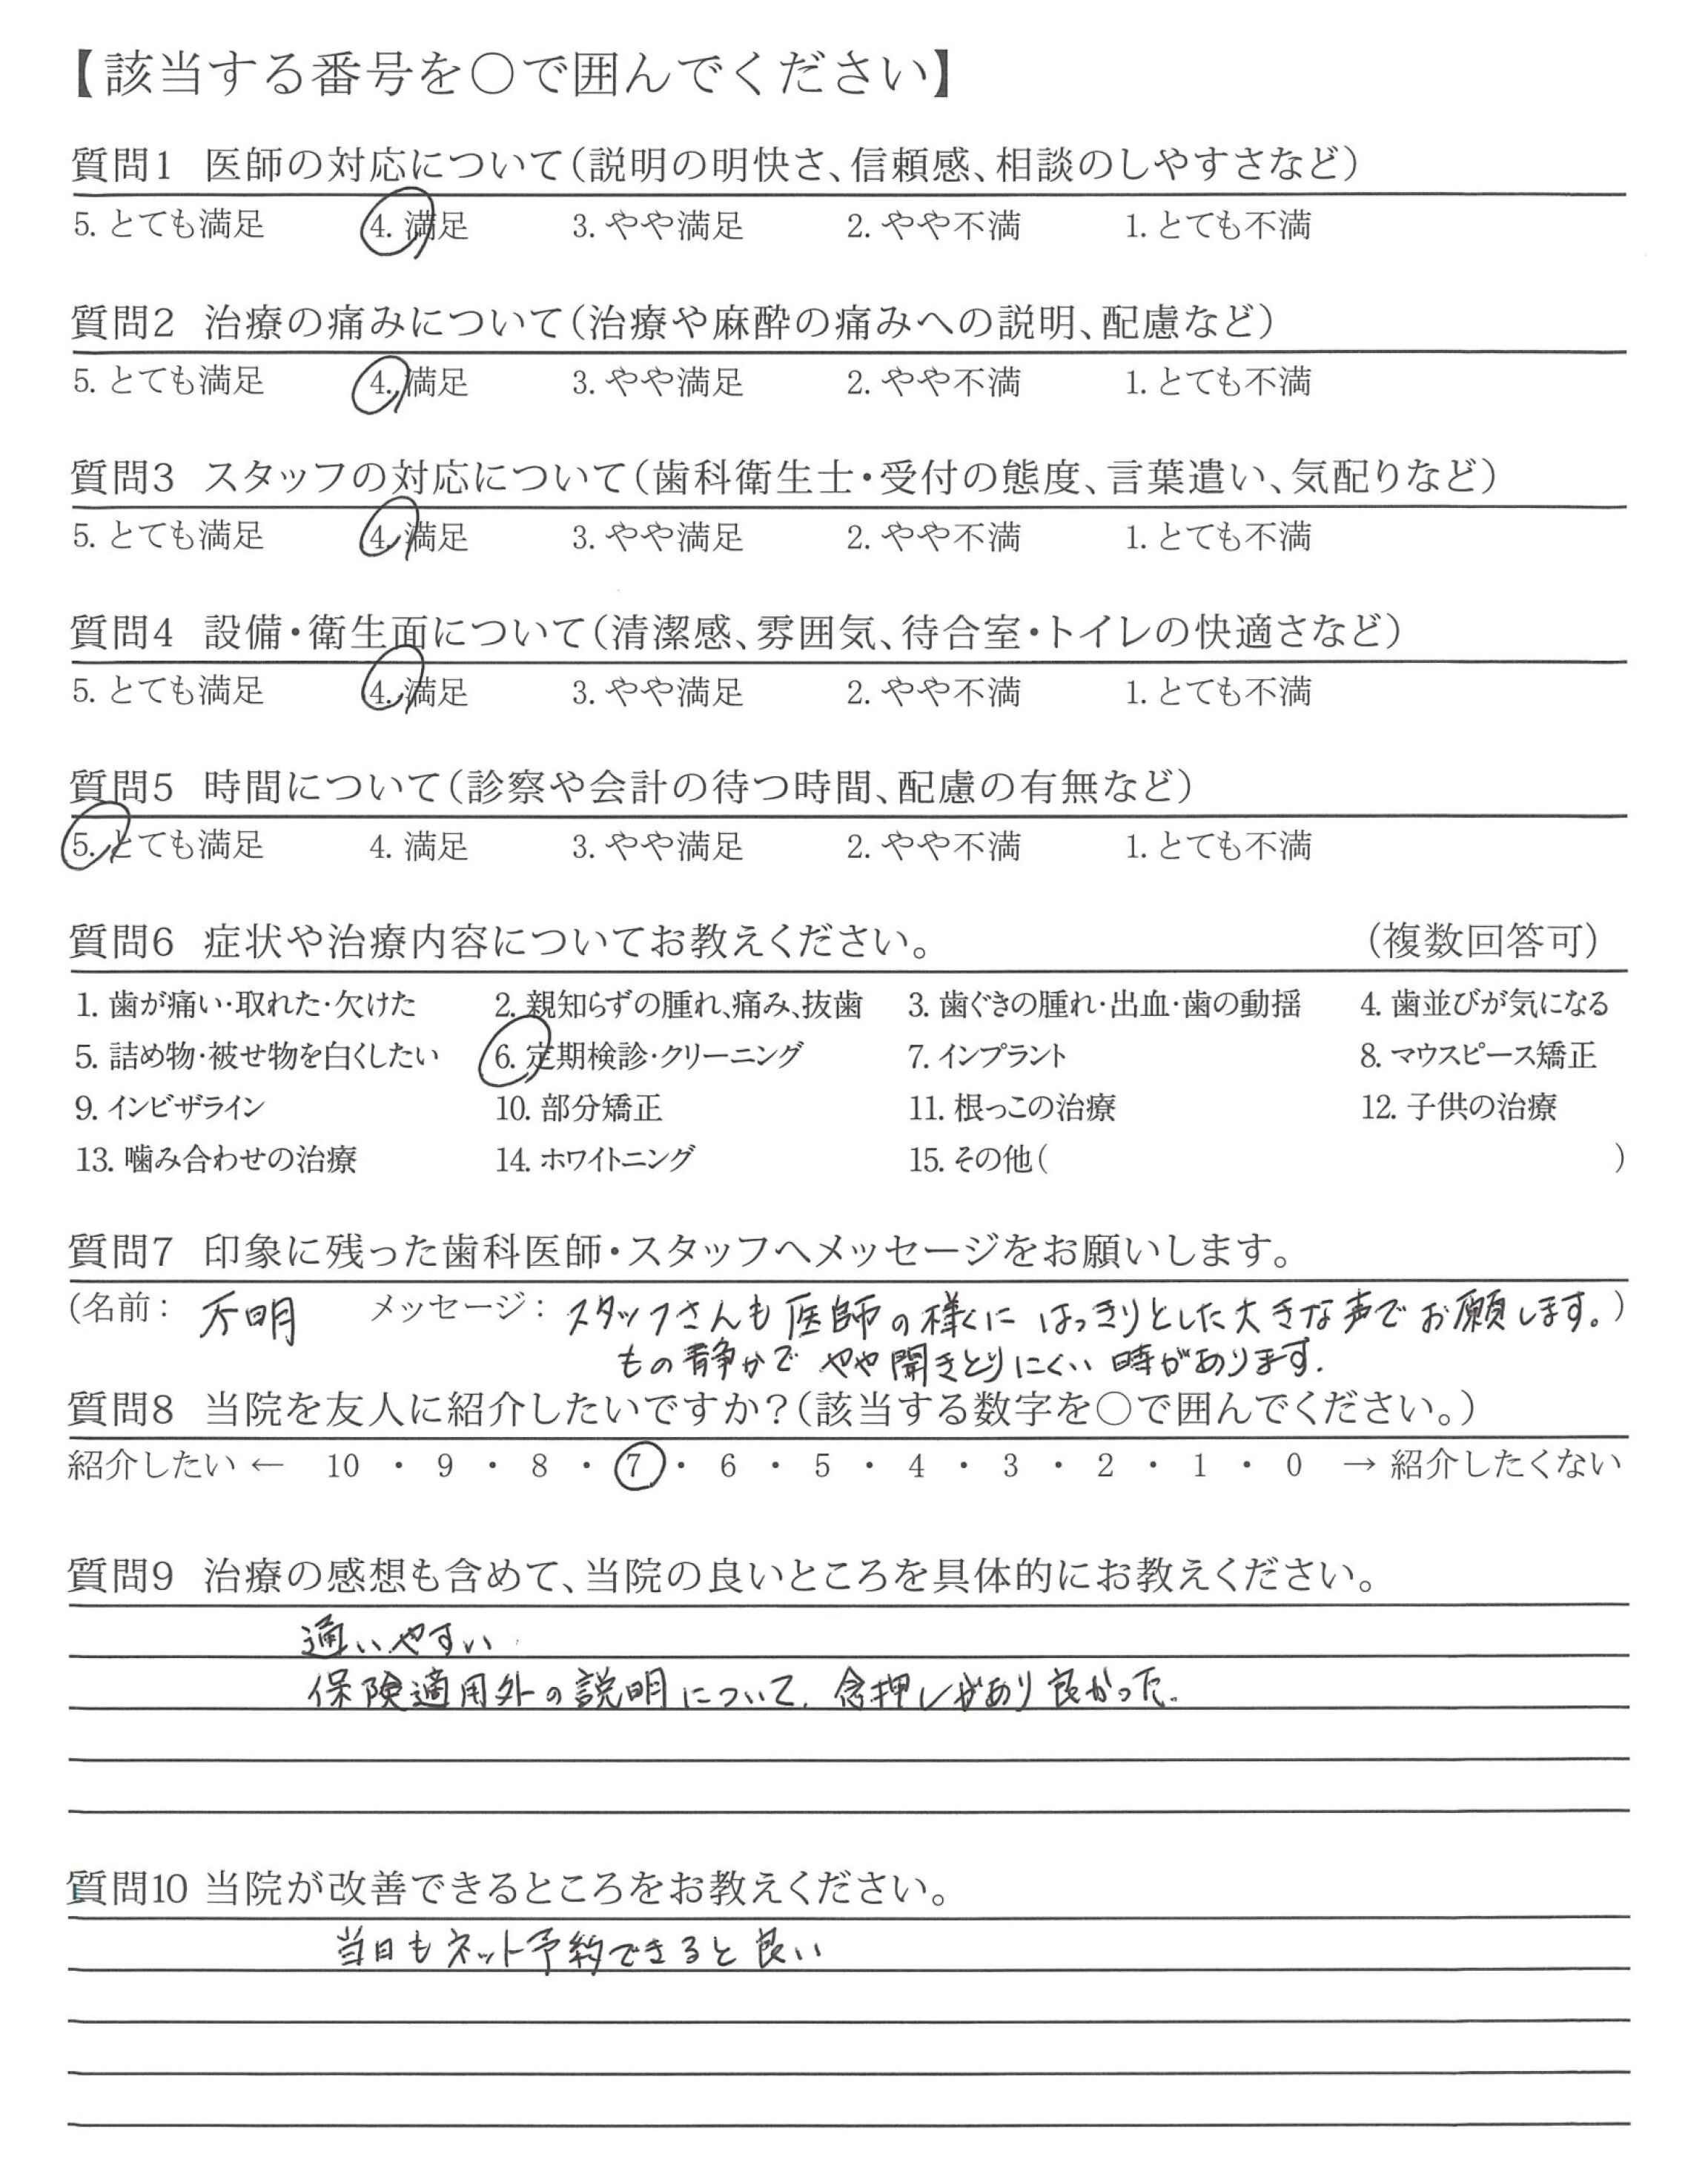 【該当する番号を○で囲んでください】
質問1 医師の対応について(説明の明快さ、信頼感、相談のしやすさなど)
5. とても満足 4. 満足 3. やや満足 2. やや不満 1. とても不満
質問2 治療の痛みについて(治療や麻酔の痛みへの説明、配慮など)
5. とても満足 4. 満足 3. やや満足 2. やや不満 1. とても不満
質問3 スタッフの対応について(歯科衛生士・受付の態度、言葉遣い、気配りなど)
5. とても満足 4. 満足 3. やや満足 2. やや不満 1. とても不満
質問4 設備・衛生面について(清潔感、雰囲気、待合室・トイレの快適さなど)
5. とても満足 4. 満足 3. やや満足 2. やや不満 1. とても不満
質問5 時間について(診察や会計の待つ時間、配慮の有無など)
5. とても満足 4. 満足 3. やや満足 2. やや不満 1. とても不満
質問6 症状や治療内容についてお教えください。 (複数回答可)
1. 歯が痛い・取れた・欠けた 2. 親知らずの腫れ、痛み、抜歯 3. 歯ぐきの腫れ・出血・歯の動揺 4. 歯並びが気になる
5. 詰め物・被せ物を白くしたい 6. 定期検診・クリーニング 7. インプラント 8. マウスピース矯正
9. インビザライン 10. 部分矯正 11. 根っこの治療 12. 子供の治療
13. 噛み合わせの治療 14. ホワイトニング 15. その他( )
質問7 印象に残った歯科医師・スタッフへメッセージをお願いします。
(名前: 不明 メッセージ: スタッフさんも医師の様に はっきりとした大きな声でお願します。)
もの静かで やや聞きとりにくい時があります.
質問8 当院を友人に紹介したいですか?(該当する数字を○で囲んでください。)
紹介したい ← 10 ・ 9 ・ 8 ・ 7 ・ 6 ・ 5 ・ 4 ・ 3 ・ 2 ・ 1 ・ 0 → 紹介したくない
質問9 治療の感想も含めて、当院の良いところを具体的にお教えください。
通いやすい
保険適用外の説明について、念押しがあり良かった.
質問10 当院が改善できるところをお教えください。
当日もネット予約できると良い